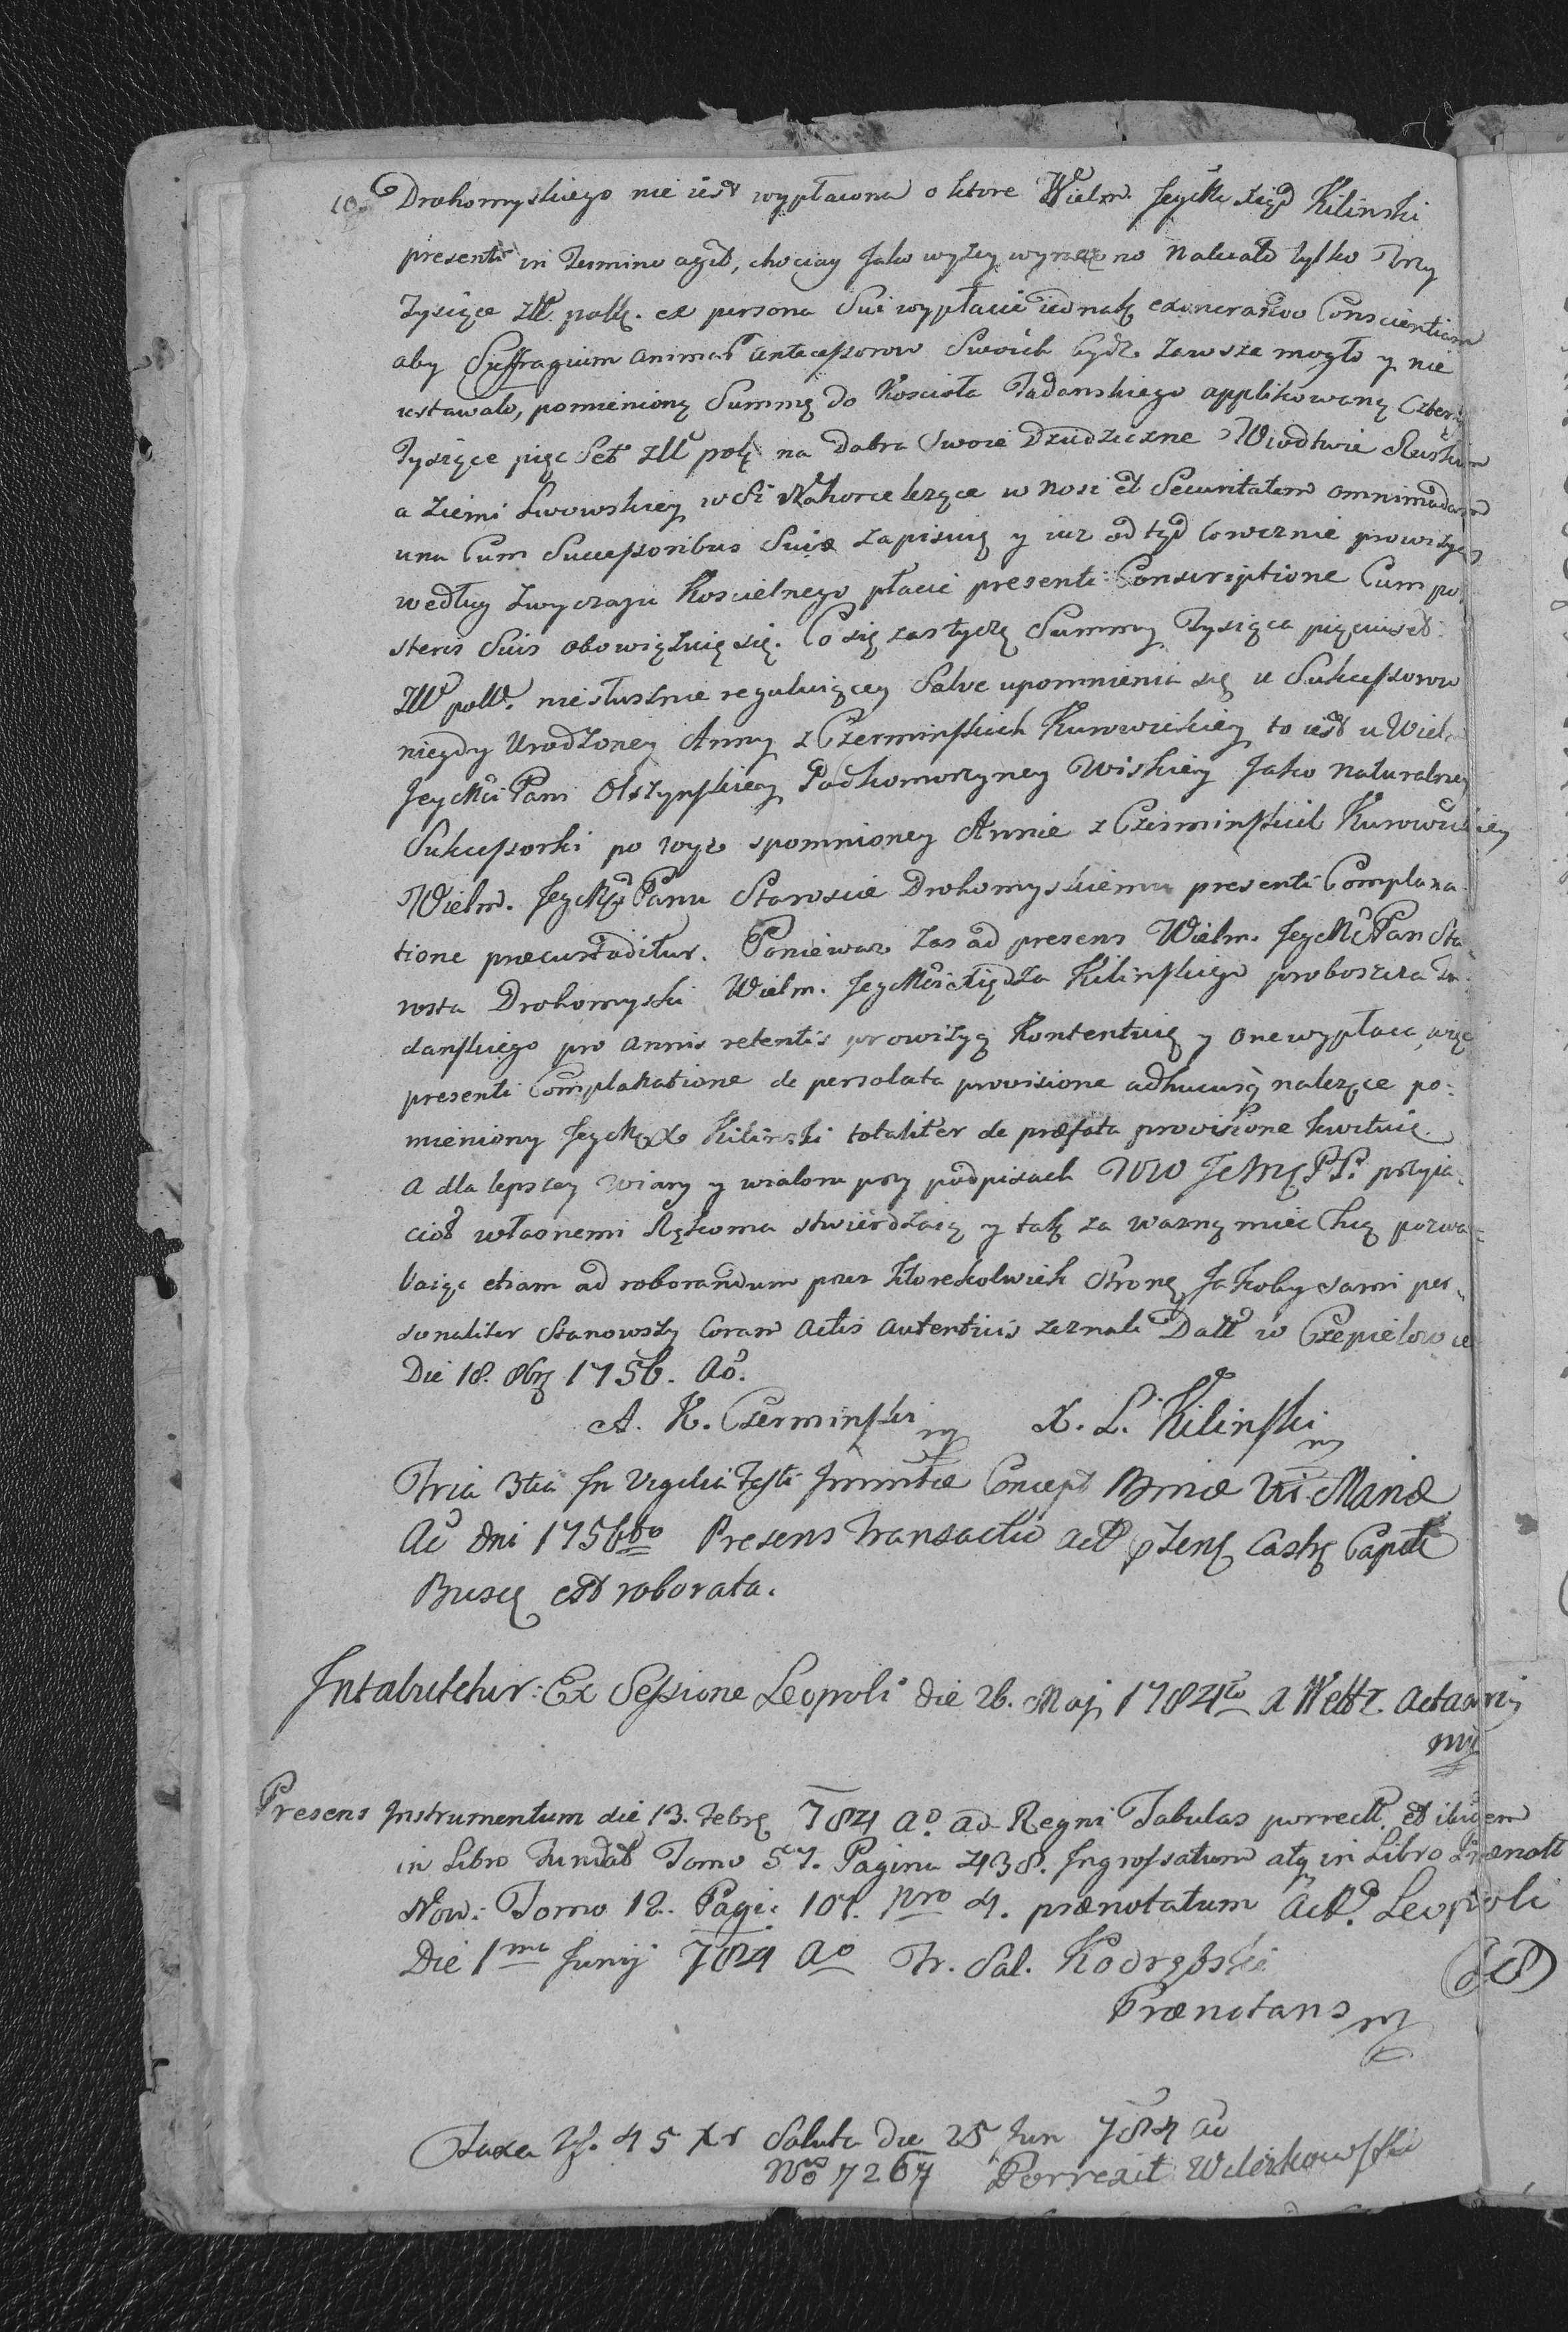 10. Drohomyskiego nie iest wypłacona o ktore Wielm. JeyMc Xiądz Kilinski
presenti in Termino agit, chociay Jako wyżey wyrażono należało tylko Trzy
Tysiące Złł. polk. ex persona Sui wypłacić iednak exonerando Conscientiam
aby Suffragium animab antecessorow Swoich bydz zawsze mogło y nie
ustawało, pomienioną Summę do Kościoła Tadanskiego applikowaną Cztery
Tysiące pięc Set złł polk na dobra Swoie Dziedziczne W Wiodtwie Ruskim
a Ziemi Lwowskiey wsi Nahorce leżące w nosi et Securitatem omnimodam
una Cum Successoribus Suis zapisuię y iuz od tąd Corocznie prowizyą
według zwyczaju Koscielnego płacić presenti Conscriptione Cum po
steris Suis obowiązuię się. Co się zas tycze Summy Tysiąca pięciuset
Złł polk. niesłusznie reguluiącey Salve upomnienia się u Sukcessorow
niegdy Urodzoney Anny z Czerminskich Kurowickiey to iest u Wielm
JeyMci Pani Olszynskiey Podkomorzyney Wiskiey Jako naturalney
Sukcessorki po wyż spomnioney Annie z Czerminskich Kurowickiey
Wielm. JeyMci Panu Staroscie Drohomyskiemu presenti Complana
tione præcustoditur. Poniewaz zas ad presens Wielm. JeyMc Pan Sta
rosta Drohomyski Wielm. JeyMci Xiędza Kilinskiego proboszcza Ta
danskiego pro annis retentis prowizyą Kontentuię y one wypłaca, więc
presenti Complanatione de persoluta provisione adhucusq należące po:
mieniony JeyMc X Kilinski totaliter de præfata provisione kwituie.
A dla lepszey Wiary y wialoru przy podpisach WW JchMc PP. przyia
cioł własnemi Rękoma stwierdzaią y tak za wazną miec Chcą pozwa
laiąc etiam ad roborandum przez ktorekolwiek Stronę Jakoby sami per
sonaliter Stanowszy Coram Actis Autenticis zeznali Datt w Czepielowie
Die 18. 8brj 1756. Ao.
A. K. Czerminski mp X. L. Kilinski mp
Fria 3tia In Vigilia Festi Immtæ Concept Bmiæ Vis Mariæ
Ao Dni 1756to Presens Transactio Act pstenq Castr Capit
Busc est roborata.
Intabuletur: Ex Sessione Leopoli die 26. Maj 1784to A Weltz. Actuarij
mp
Presens Instrumentum die 13. Febr 784 Ao. ad Regni Tabulas porrect. et ibidem
in Libro Fundat Tomo 57. Pagina 438. Ingrossatum atq in Libro Prænott
Nov: Tomo 12. Pagi: 107. Nro 4. prænotatum Act. Leopoli
Die 1ma Junij 784 Ao Fr. Sal. Kodrębski
Prænotans mp
Taxa 45 xr Soluta die 25 Jun 784 Ao
Nro 7267 Porrexit